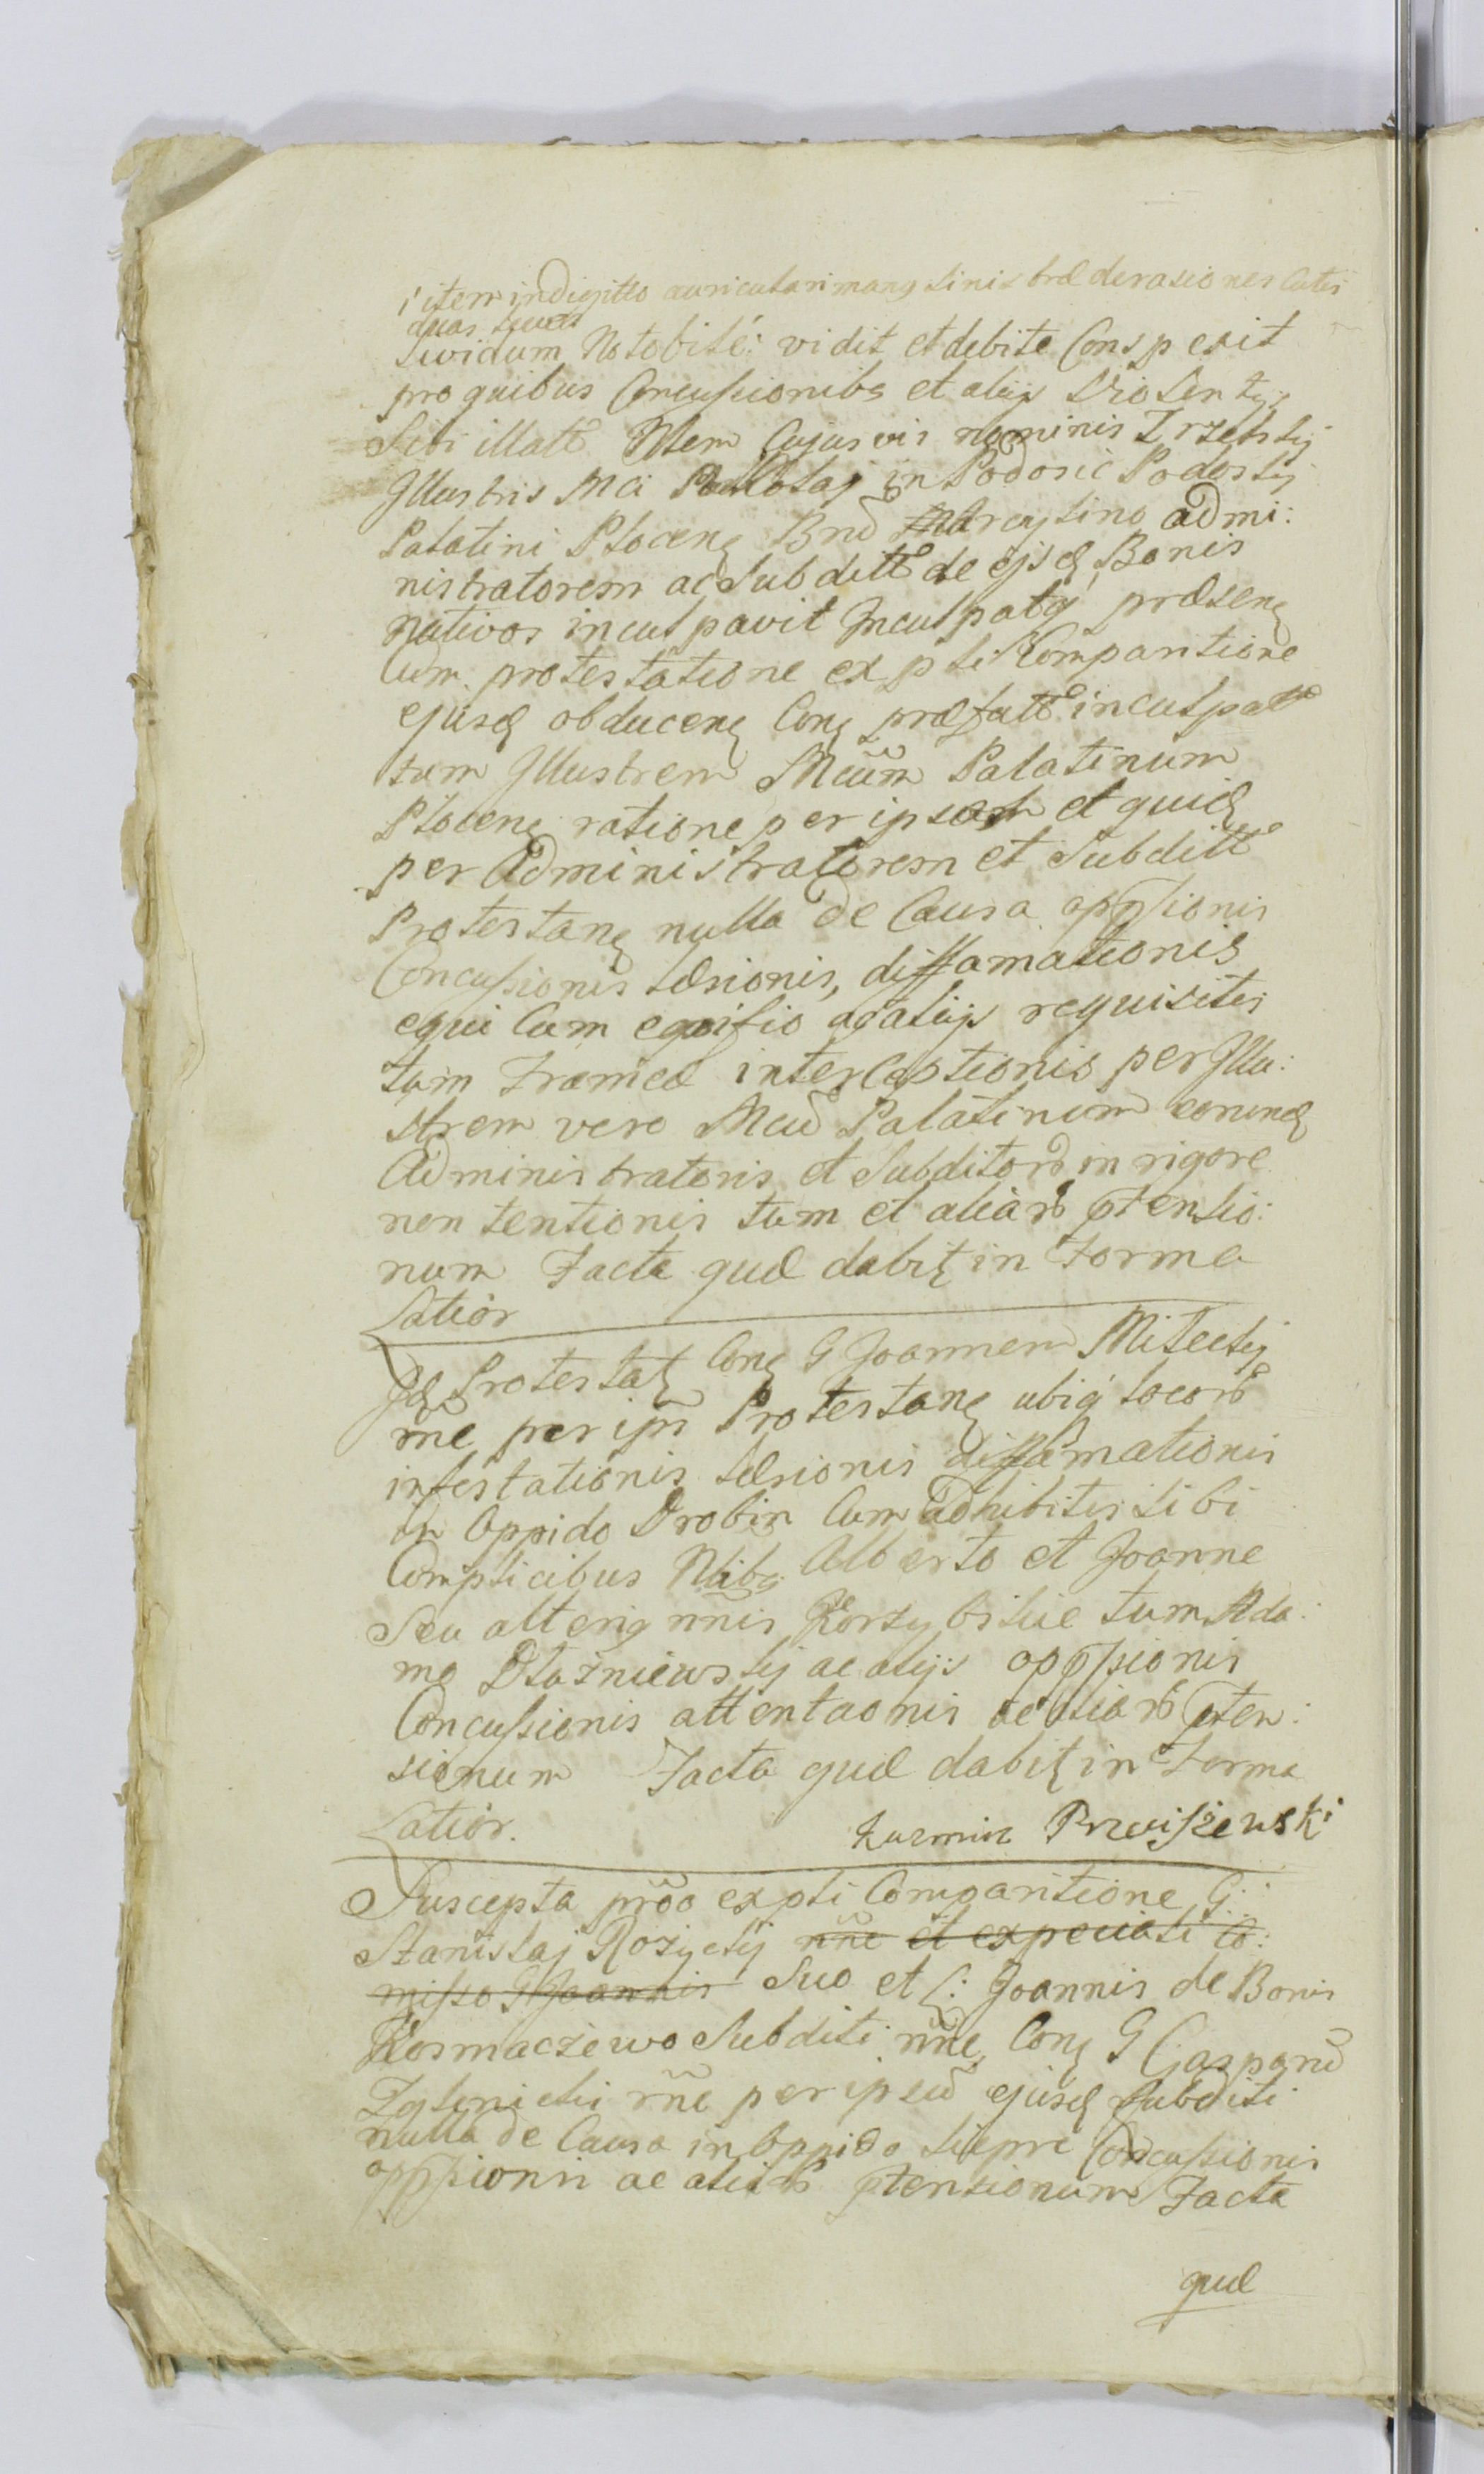 item in digitto auriculari manq sinistræ derasiones Cutis
duas
lividum Notabile: vidit et debite Conspexit
pro quibus Concussionibq et alijs violentijs
Sibi illatt Nlem Cujusvis nominis Trzebskij
Illustris Mci in Podosie Podoskij
Palatini Plocenę Bnd Marcyſino admi:
nistratorem ac Subditt de ejsdę Bonis
nativos inculpavit Inculpatq præsenę
Cum protestatione ex pte Comparitione
ejusdę obducenę Conę præfatt inculpatt
tum Illustrem Mcum Palatinum
Plocenę ratione per ipsum et quidę
per Administratorem et Subditt
Protestanę nulla de Causa oppssionis
Concussionis læsionis, diffamationis
equi Cum equifio ac alijs requisitis
tum Frameæ interceptionis per Illu:
strem vero Mcum Palatinum eorundę
Administratoris et Subditorum in rigore
non tentionis tum et aliarum ptensio:
num Facta quæ dabitę in Forma
Latior
Idę Protestatę Conę G Joannem Mileckij
rne per ipm Protestanę ubiq locorum
infestationis læsionis diffamationis
in Oppido Drobin Cum adhibitis sibi
Complicibus Nlibq Alberto et Joanne
Seu alteriq nnis Korzybskie tum Ada:
mo Dłażniewskij ac alijs oppssionis
Concussionis attentaonis ac aliarum pten:
sionum Facta quæ dabitę in Forma
Latior. Kazmirz Przeciszewski
Suscepta prõo ex pti Comparitione G:
Stanislaj Rozyckij nne et ex peciati Co:
misso G Joannis Suo et L: Joannis de Bonis
Kosmaczewo Subditi nne Conę G Casparum
Zglenicki rne per ipsum ejusdę Subditi
nulla de Causa in Oppido Sierpc Concussionis
oppssionis ac aliarum ptensionum Facta
quæ